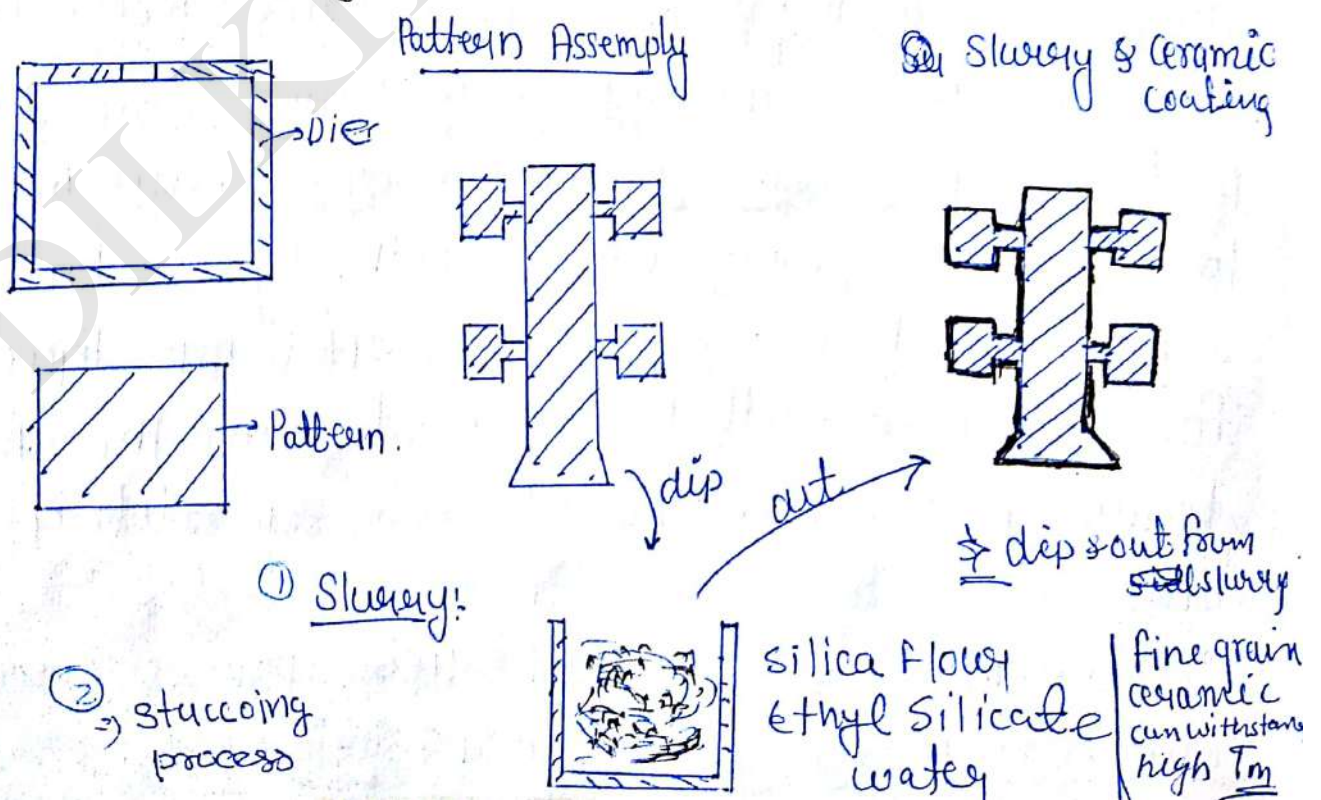 Pattern Assemply
Slurry & Ceramic
coating
Dier
Pattern.
dip
out
dip & out from
slurry
① Slurry:
② ⇒ stuccoing
process
silica Flour
Ethyl Silicate
water
fine grain
ceramic
can withstand
high Tm
DILK